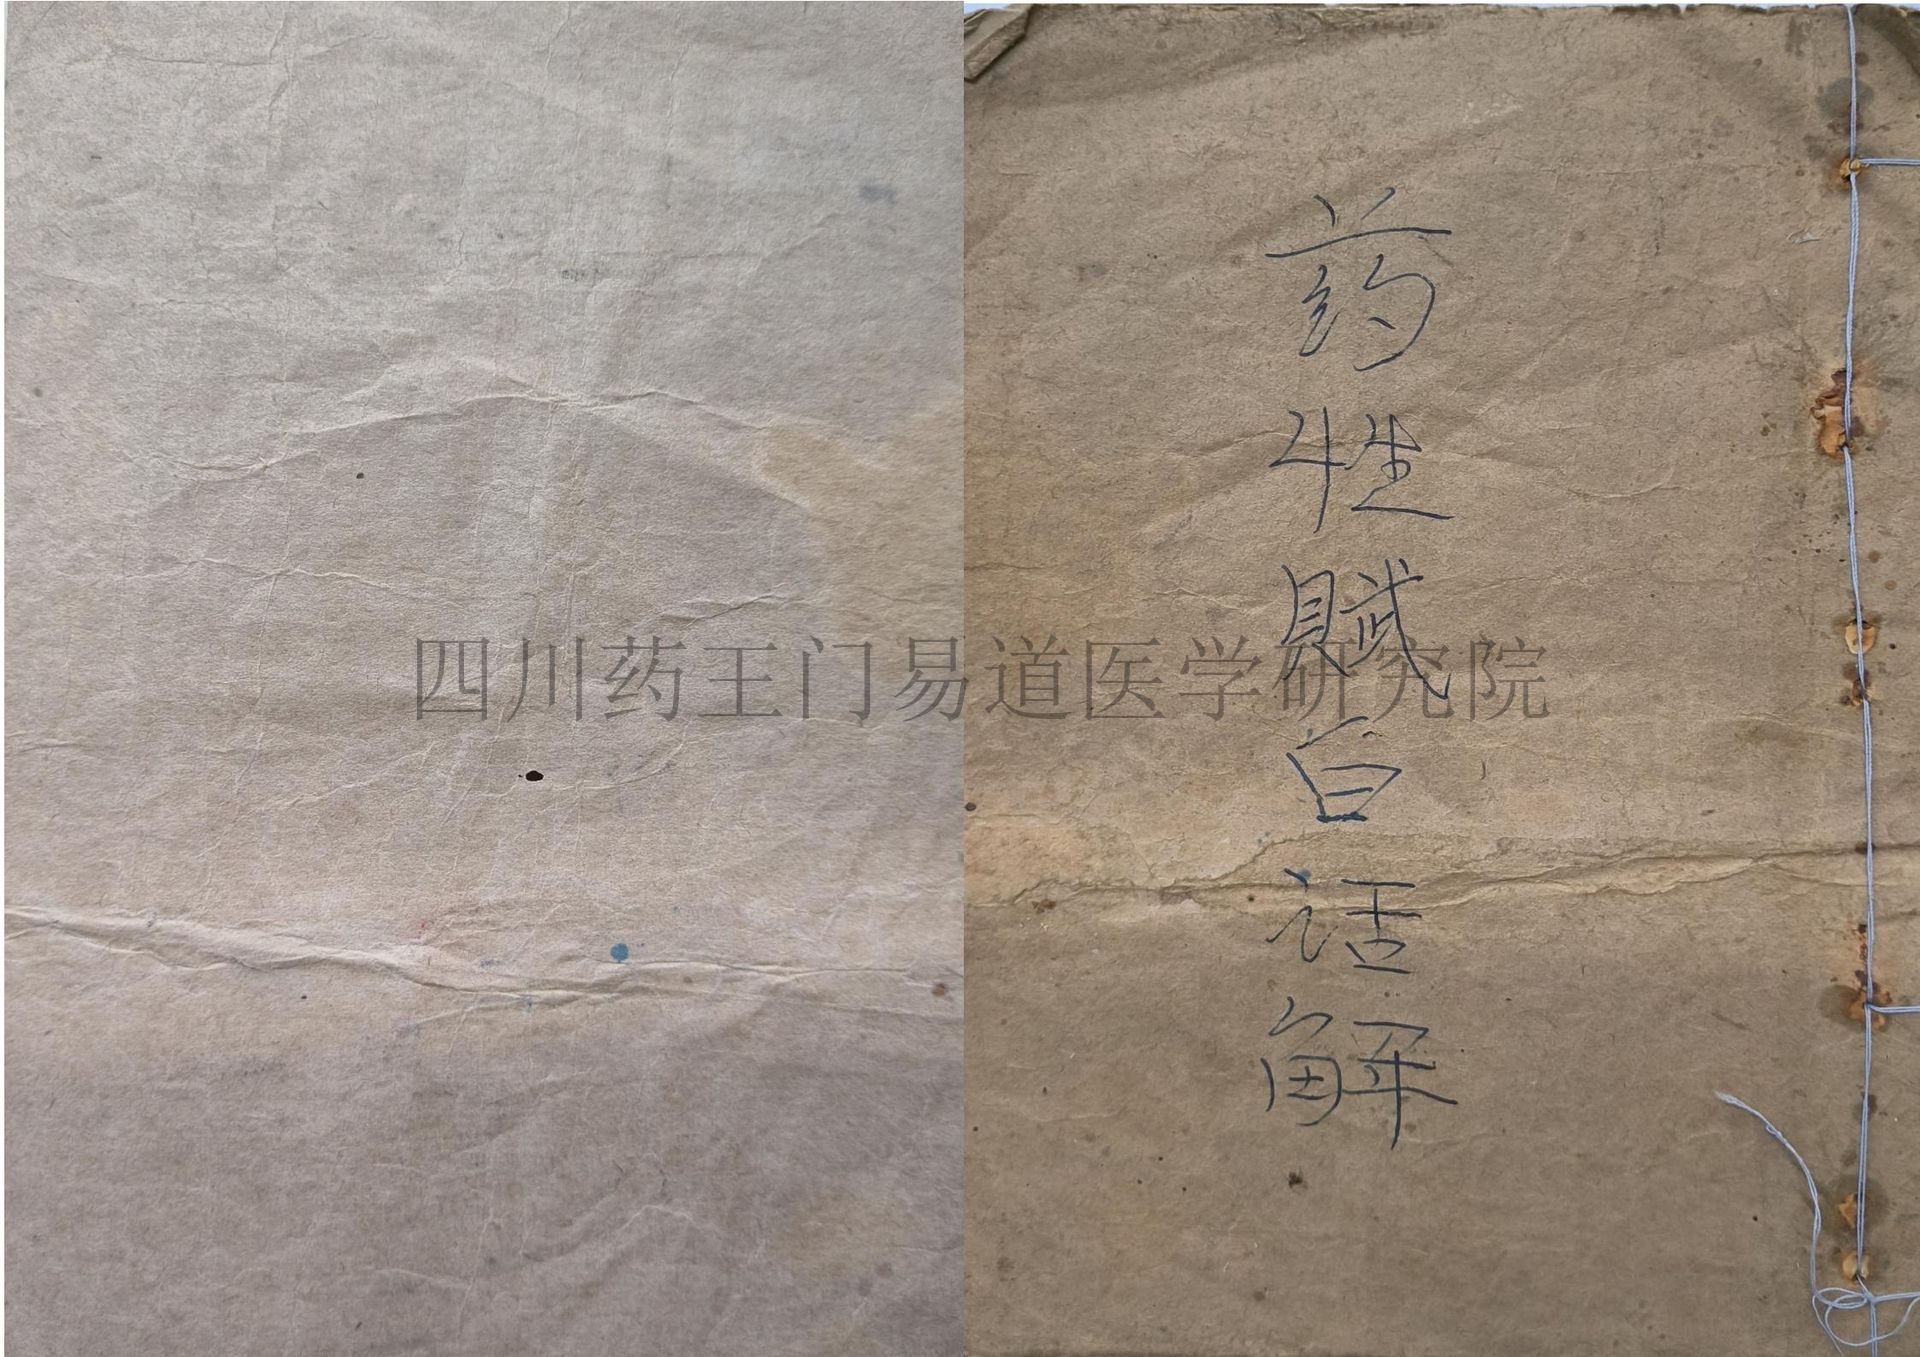 药性赋白话解
四川药王门易道医学研究院